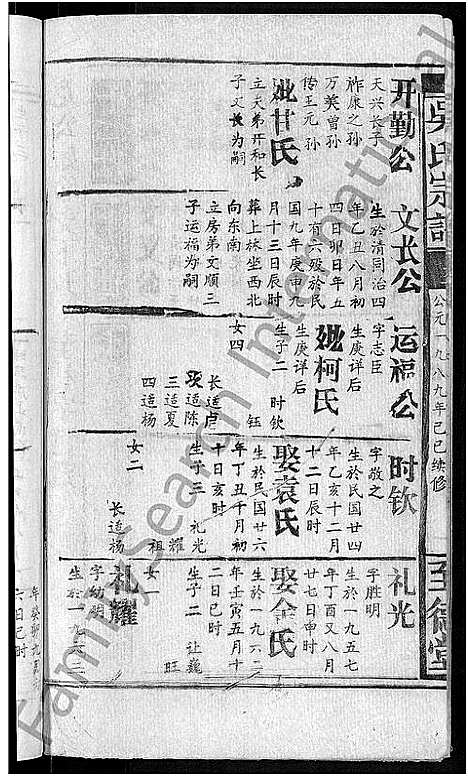 吴氏宗譜
公元一九八九年己巳续修
至德堂
开勤公
天兴长子
祚康之孙
万英曾孙
传玉元孙
妣甘氏
立天弟开和长
子文长为嗣
文长公
生於清同治四
年乙丑八月初
四日卯时年五
十有六殁於民
国九年庚申九
月十三日辰时
葬上林坐西北
向东南
立房弟文顺三
子运福为嗣
运福公
字志臣
生庚详后
妣柯氏
生庚详后
生子二 时钦
钰
女四
长适卢
次适陈
三适夏
四适杨
时钦
字敬之
生於民国廿四
年乙亥十二月
十二日辰时
娶袁氏
生於民国廿六
年丁丑千月初
十日亥时
生子三 礼光
耀
祖
女二
长适杨
礼光
字胜明
生於一九五七
年丁酉又八月
廿七日申时
娶余氏
生於一九六二
年壬寅五月十
二日巳时
生子二 让巍
旺
女一
礼耀
字幼
生於一九六三
年癸卯九月
六日巳时
FamilySearch International